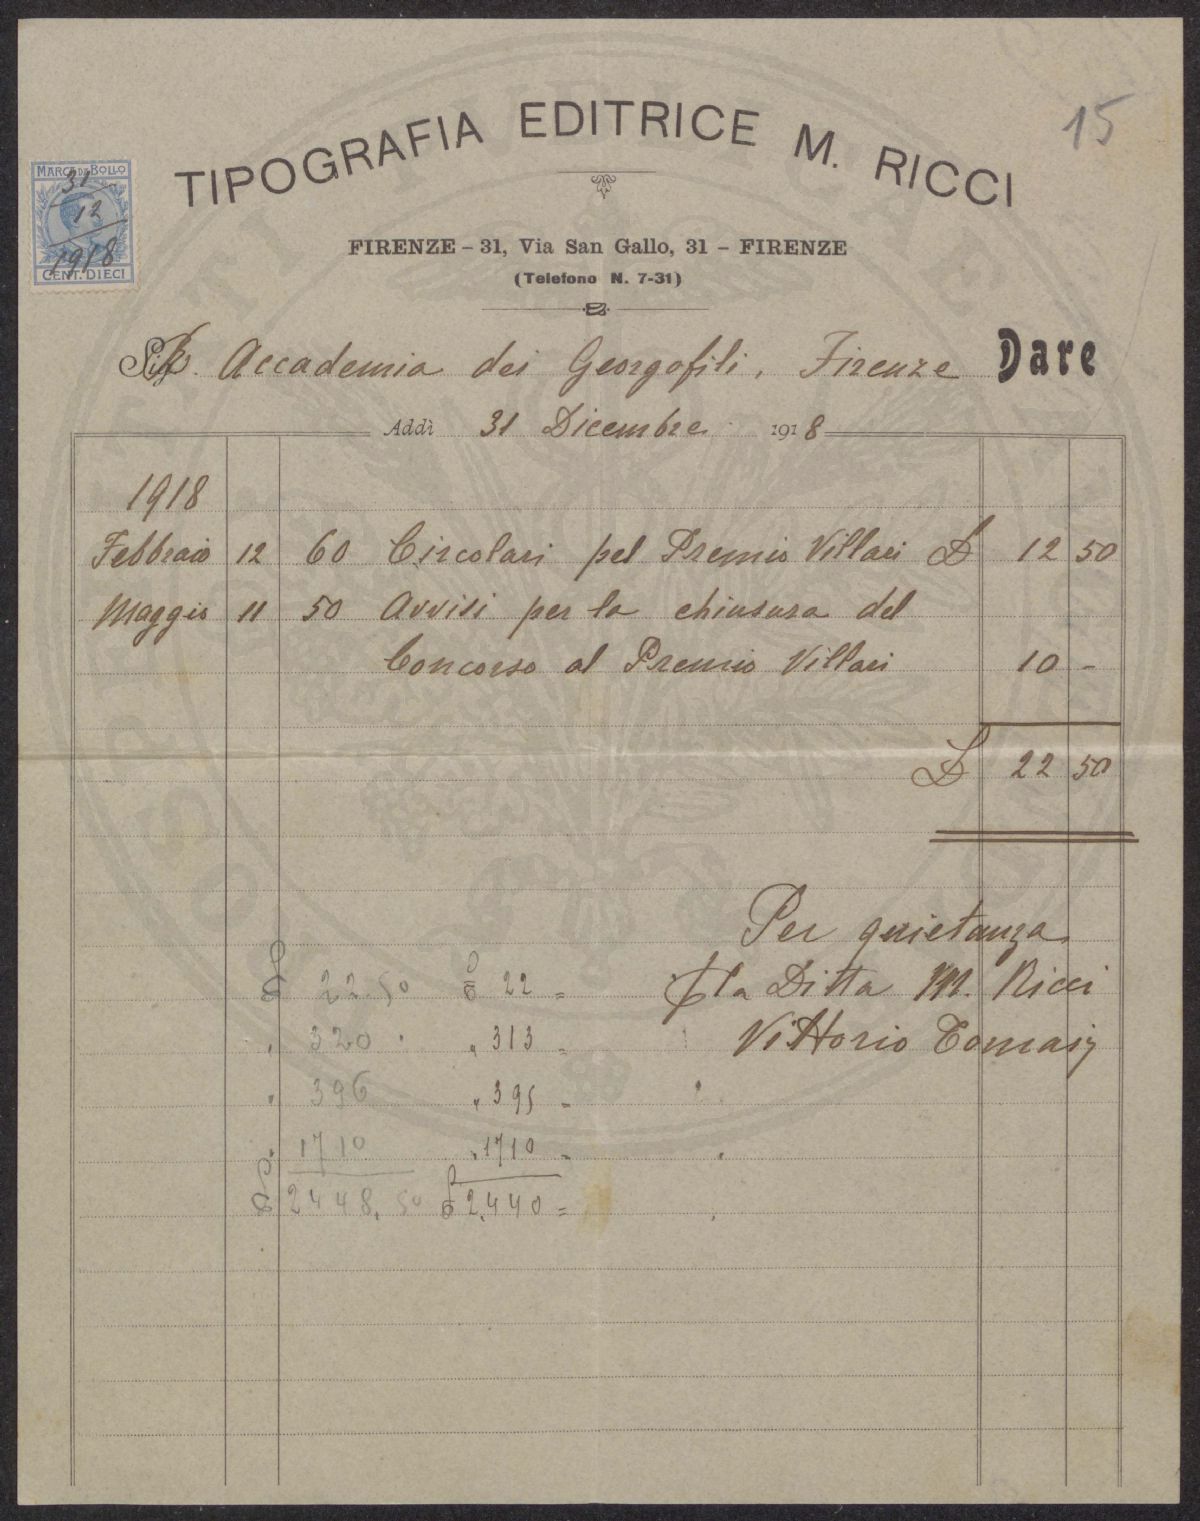 15
TIPOGRAFIA EDITRICE M. RICCI
MARCA DA BOLLO
31
12
1918
CENT. DIECI
FIRENZE – 31, Via San Gallo, 31 – FIRENZE
(Telefono N. 7-31)
R. Accademia dei Georgofili, Firenze Dare
Addì 31 Dicembre 1918
1918
Febbraio 12 60 Circolari pel Premio Villari L 12 50
Maggio 11 50 Avvisi per la chiusura del
Concorso al Premio Villari 10 -
L 22 50
Per quietanza
p la Ditta M. Ricci
Vittorio Tomasi
£ 22.50 £ 22 =
" 320 " 313 =
" 396 " 395 =
" 1710 " 1710 =
£ 2448,50 £ 2,440 =